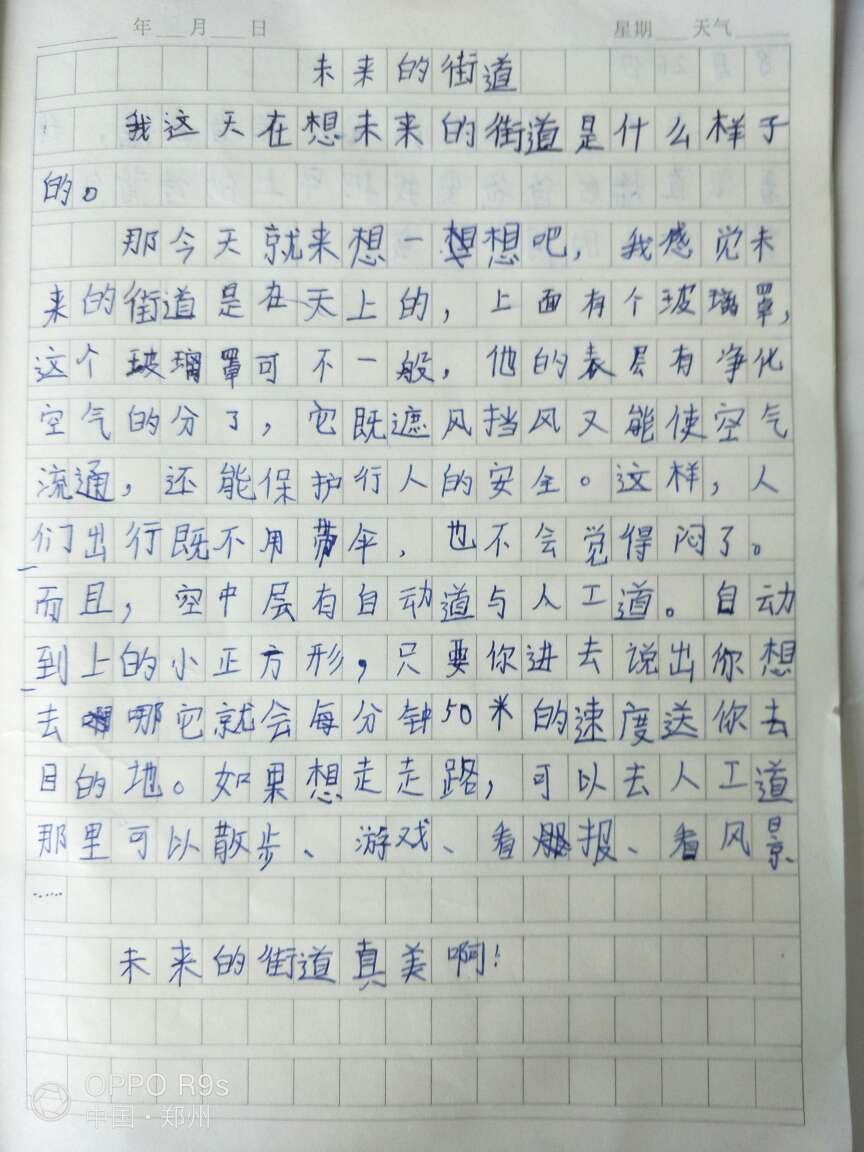 年 月 日 星期 天气
未来的街道
我这天在想未来的街道是什么样子
的。
那今天就来想一想想吧，我感觉未
来的街道是在天上的，上面有个玻璃罩，
这个玻璃罩可不一般，他的表层有净化
空气的分了，它既遮风挡风又能使空气
流通，还能保护行人的安全。这样，人
们出行既不用带伞，也不会觉得闷了。
而且，空中层有自动道与人工道。自动
到上的小正方形，只要你进去说出你想
去哪它就会每分钟50米的速度送你去
目的地。如果想走走路，可以去人工道
那里可以散步、游戏、看报、看风景
……
未来的街道真美啊！
OPPO R9s
中国·郑州